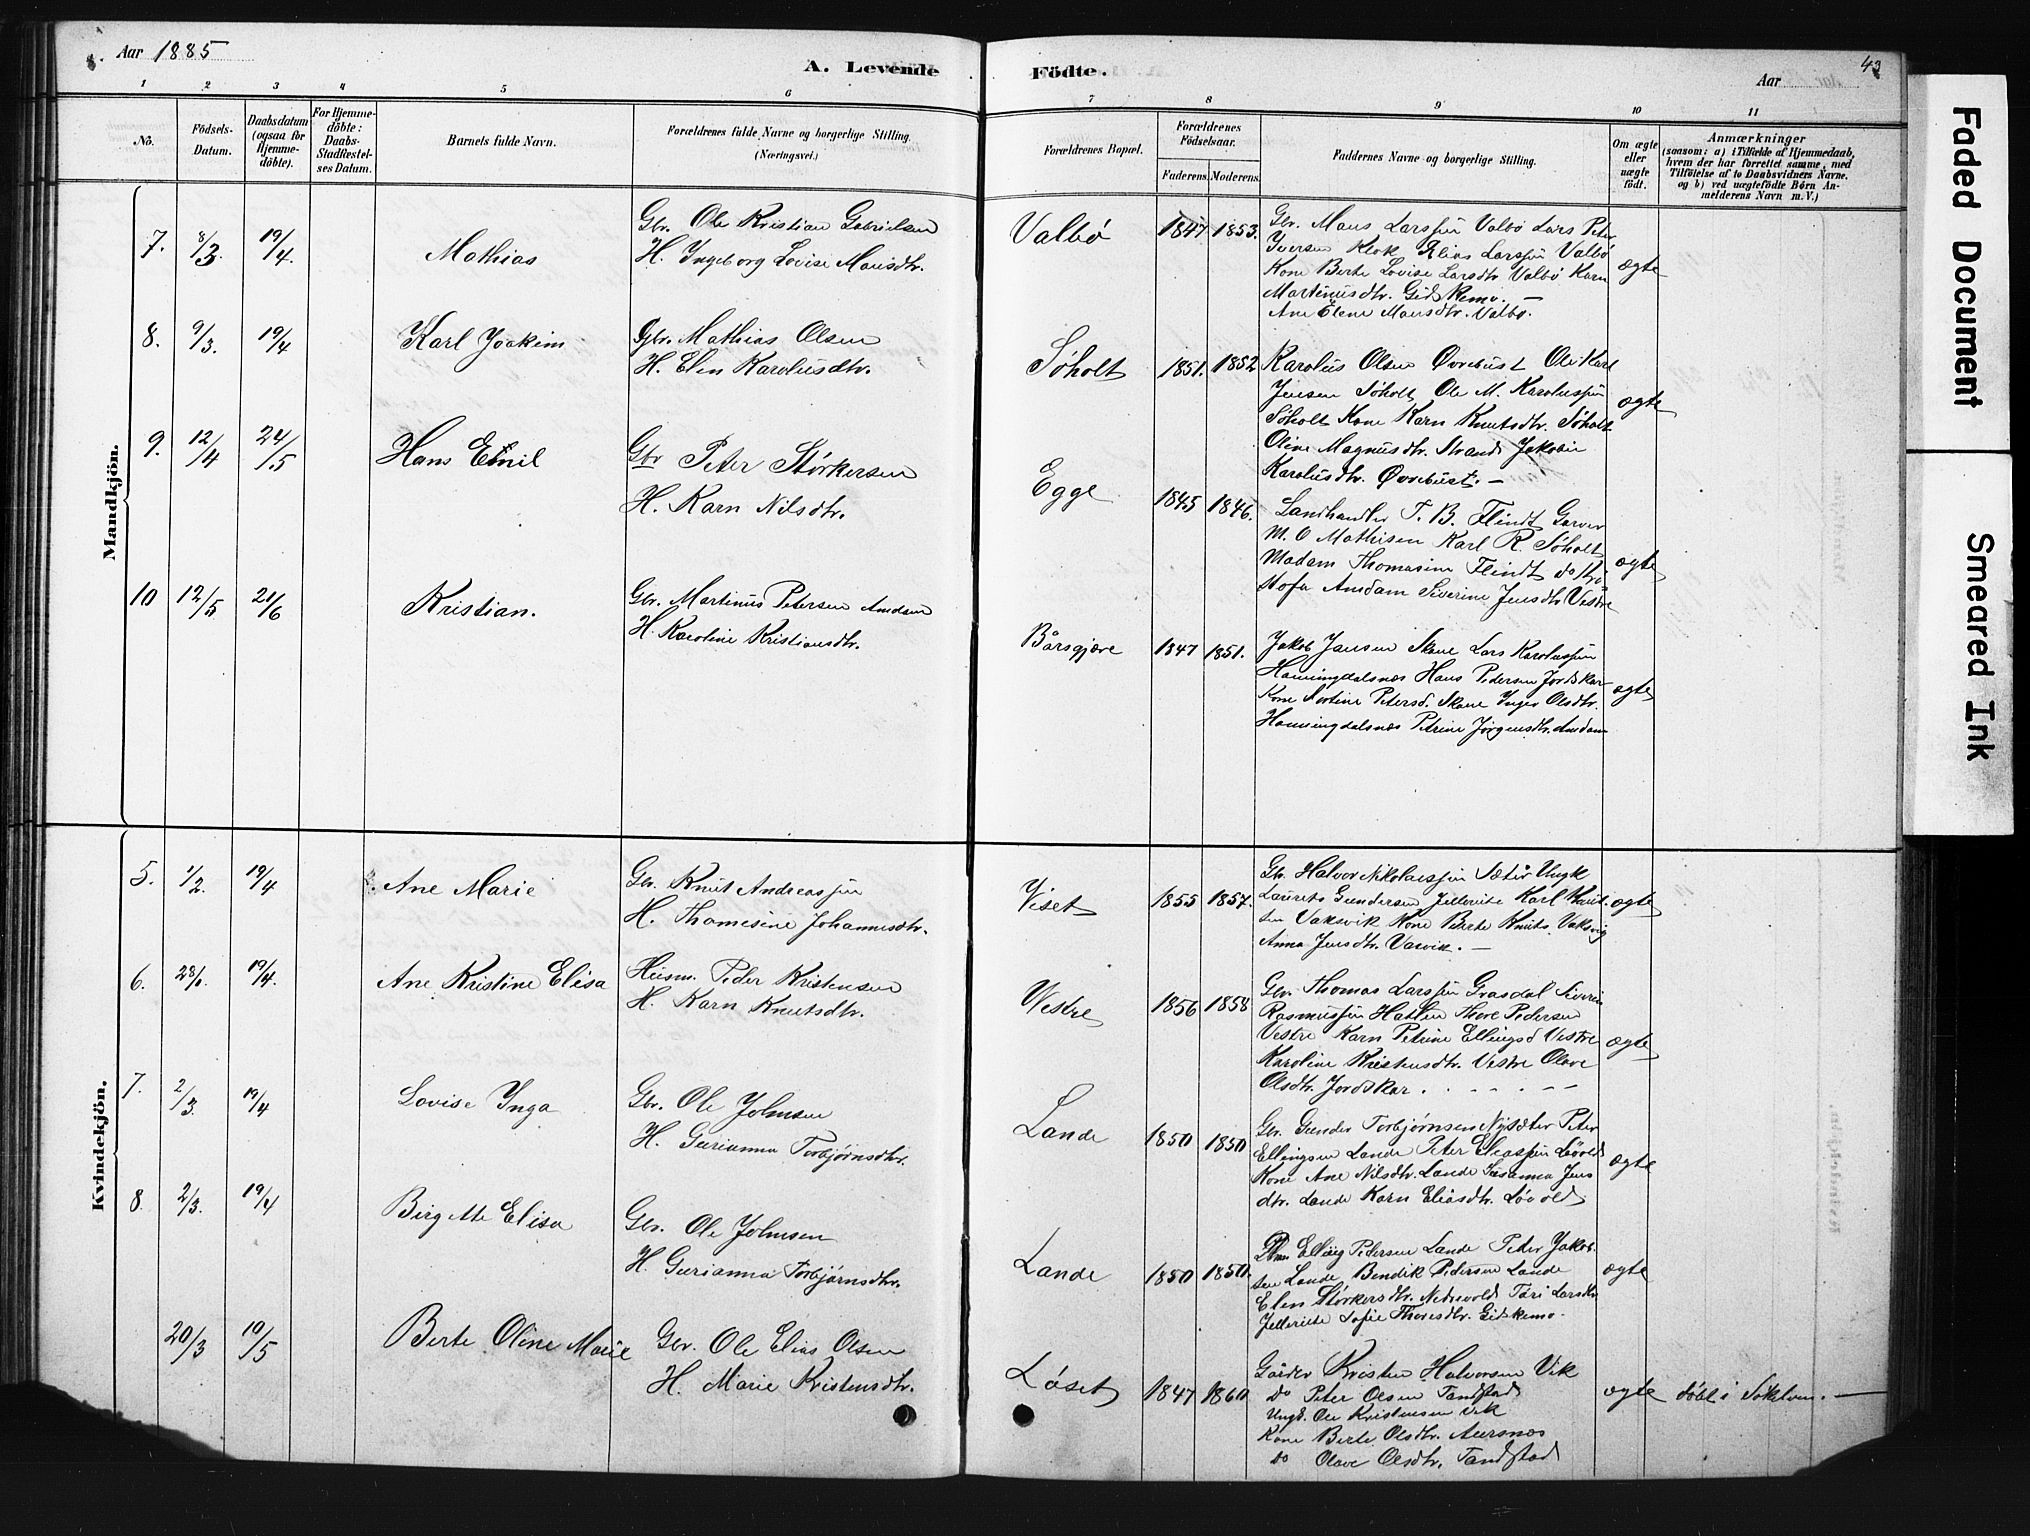 Aar 1885
A. Levende
Födte.
Aar
43
1 2 3 4 5 6 7 8 9 10 11
No.
Födsels-
Datum.
Daabsdatum
(ogsaa for
Hjemme-
döbte).
For Hjemme-
döbte:
Daabs-
Stadfæstel-
ses Datum.
Barnets fulde Navn.
Forældrenes fulde Navne og borgerlige Stilling.
(Næringsvei.)
Forældrenes Bopæl.
Forældrenes
Födselsaar.
Faderens.
Moderens.
Faddernes Navne og borgerlige Stilling.
Om ægte
eller
uægte
födt.
Anmærkninger
(saasom: a) i Tilfælde af Hjemmedaab,
hvem der har forrettet samme, med
Tilföielse af to Daabsvidners Navne.
og b) ved uægtefödte Börn An-
melderens Navn m.V.)
Mandkjön.
7. 8/3. 19/4. Mathias
Gbr. Ole Kristian Gabrielsen
H. Ingeborg Lovise Mansdtr.
Valbø 1847 1853.
Gbr. Mans Larssen Valbø Lars Peter
Iversen Klok Elias Larssen Valbø
Kone Berte Lovise Larsdtr Valbø Karn
Martinusdtr. Gidskemo. —
Ane Elene Mansdtr. Valbø.
ægte
8. 9/3. 19/4 Karl Joakim
Gbr. Mathias Olsen
H. Elen Karolusdtr.
Søholt 1851. 1852
Karolus Olsen Øvrebust Ole Karl
Jensen Søholt Ole M. Karolussen
Søholt Kone Karn Knutsdtr. Søholt
Oline Magnusdtr. Strand Jakobin
Karolusdtr. Øvrebust. —
ægte
9. 12/4 24/5 Hans Emil
Gbr Peter Størkersen
H. Karn Nilsdtr.
Egge 1845 1846.
Landhandler T. B. Flindt Garver
M. O Mathisen Karl R. Søholt
Madam Thomasine Flindt do
Amdam Siverine Jensdtr Vestre
ægte
10 12/5 21/6 Kristian.
Gbr. Martinus Petersen Amdam
H. Karoline Kristiansdtr.
Bårsgjære 1847 1851.
Jakob Jansen Skane Lars Karolussen
Hamingdalsnæs Hans Pedersen Jordskar
Kone Martine Petersd. Skane Inger Olsdtr.
Hamingdalsnæs Petrine Jørgensdtr. Amdam
ægte
Kvindekjön.
5. 1/2. 19/4 Ane Marie
Gbr. Knut Andreassen
H. Thomesine Johannesdtr.
Viset 1855 1857.
Gbr. Halvor Nikolaissen Sæter Ungk
Laurits Gundersen Jelleritte Karl Knut-
sen Vaksvik Kone Berte Knuts. Vaksvig
Anna Jensdtr. Vasvik. —
ægte
6. 28/1. 19/4. Ane Kristine Elisa
Husm. Peder Kristensen
H. Karn Knutsdtr.
Vestre 1856 1858
Gbr. Thomas Larssen Grasdal Siverin
Rasmussen Hatlen Thore Pedersen
Vestre Karn Petrine Ellingsd Vestre
Karoline Kristensdtr. Vestre Olave
Olsdtr. Jordskar.
ægte
7. 2/3. 19/4 Lovise Inga
Gbr. Ole Johnsen
H. Gurianna Torbjørnsdtr.
Lande 1850 1850
Gbr. Gunder Torbjørnsen Nysæter Peter
Ellingsen Lande Peter Eliassen Løvold
Kone Ane Nilsdtr. Lande Susanna Jens
dtr. Lande Karn Eliasdtr. Løvold
ægte
8. 2/3. 19/4 Birgitte Elisa
Gbr. Ole Johnsen
H. Gurianna Torbjørnsdtr.
Lande 1850 1850.
Elling Pedersen Lande Peter Jakob-
sen Lande Bendik Pedersen Lande
Elen Størkersdtr. Nedrevold Tøri Larsdtr
Jelleritte Sofie Thoresdtr. Gidskemo.
ægte
20/3 10/5 Berte Oline Marie
Gbr. Ole Elias Olsen
H. Marie Kristensdtr.
Løset 1847 1860
Gårdbr Kristen Halvorsen Vik
Do Peter Olsen Tandstad
Ungk. Ole Kristensen Vik
Kone Berte Olsdtr. Aursnæs
Do Olave Olsdtr. Tandstad
ægte
døbt i Sökelven. —
Faded Document
Smeared Ink